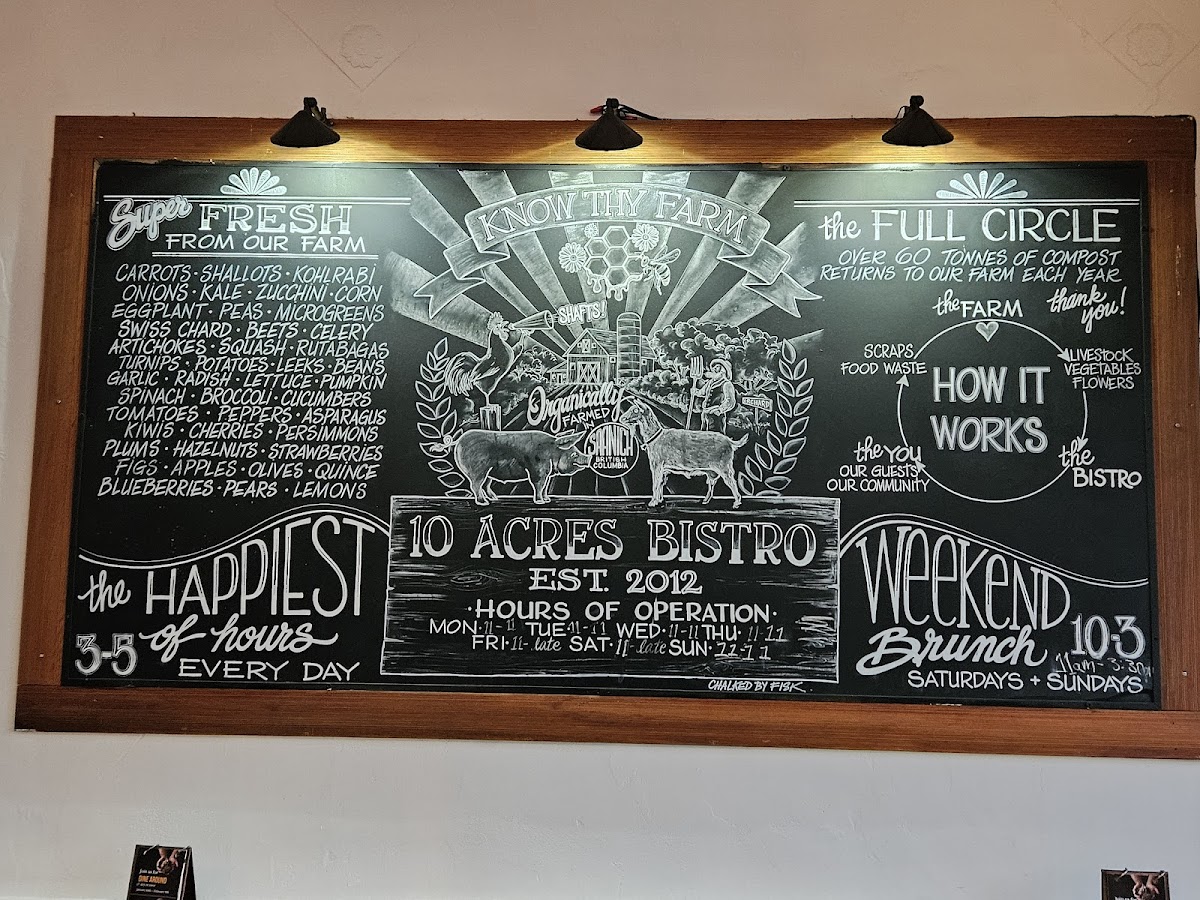 Super FRESH
FROM OUR FARM
CARROTS · SHALLOTS · KOHLRABI
ONIONS · KALE · ZUCCHINI · CORN
EGGPLANT · PEAS · MICROGREENS
SWISS CHARD · BEETS · CELERY
ARTICHOKES · SQUASH · RUTABAGAS
TURNIPS · POTATOES · LEEKS · BEANS
GARLIC · RADISH · LETTUCE · PUMPKIN
SPINACH · BROCCOLI · CUCUMBERS
TOMATOES · PEPPERS · ASPARAGUS
KIWIS · CHERRIES · PERSIMMONS
PLUMS · HAZELNUTS · STRAWBERRIES
FIGS · APPLES · OLIVES · QUINCE
BLUEBERRIES · PEARS · LEMONS
the HAPPIEST
of hours
3-5
EVERY DAY
KNOW THY FARM
SHAFTS!
ORCHARD
Organically
FARMED
SAANICH
BRITISH
COLUMBIA
10 ACRES BISTRO
EST. 2012
· HOURS OF OPERATION ·
MON · 11-11 TUE · 11-11 WED · 11-11 THU · 11-11
FRI · 11-late SAT · 11-late SUN · 11-11
CHALKED BY FISK
the FULL CIRCLE
OVER 60 TONNES OF COMPOST
RETURNS TO OUR FARM EACH YEAR
thank
you!
the FARM
SCRAPS
FOOD WASTE
LIVESTOCK
VEGETABLES
FLOWERS
HOW IT
WORKS
the YOU
OUR GUESTS
OUR COMMUNITY
the
BISTRO
WEEKEND
Brunch
10-3
11am-3:30
SATURDAYS + SUNDAYS
Join us for
DINE AROUND